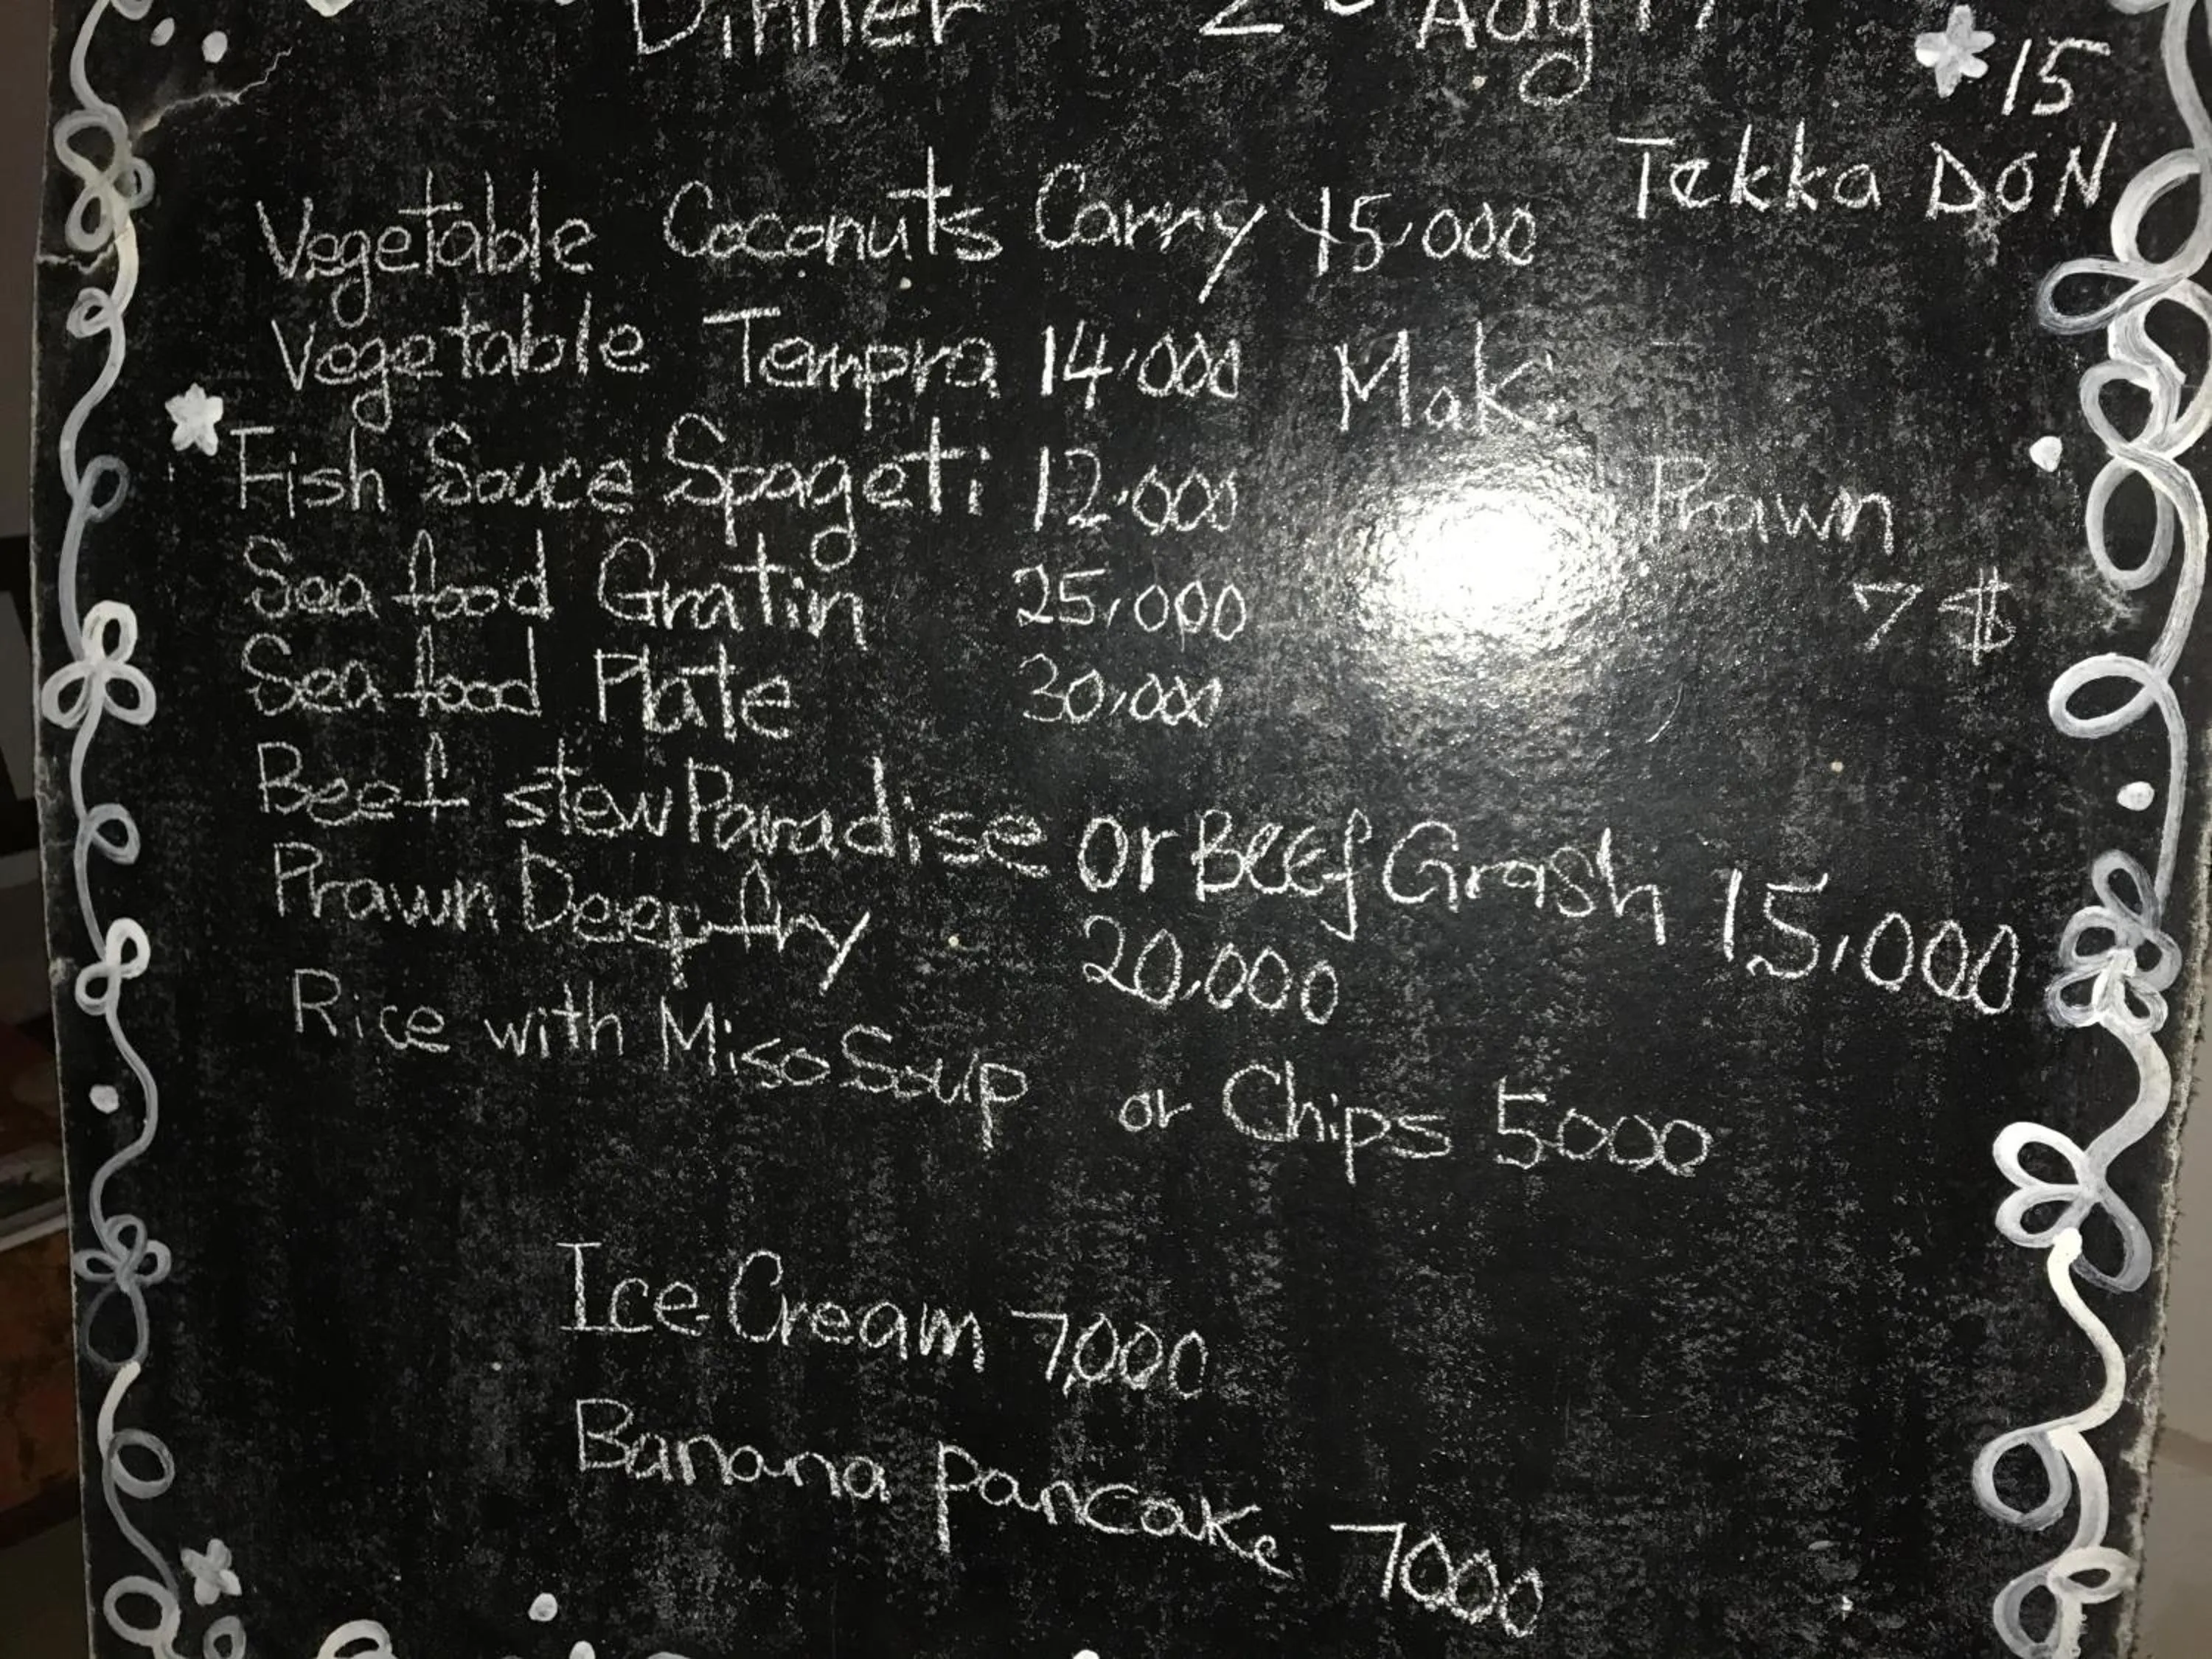 Dinner 2 Aug 17
15
Tekka DON
Vegetable Coconuts Carry 15,000
Vegetable Tempra 14,000
Maki
Fish Sauce Spageti 12,000
Prawn
7 $
Sea food Gratin 25,000
Sea food Plate 30,000
Beef stew Paradise or BEEf Grash 15,000
Prawn Deep fry 20,000
Rice with Miso Soup or Chips 5000
Ice Cream 7,000
Banana pancake 7000